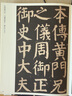 本傳黃門兄
之儀周御正
御史中大夫